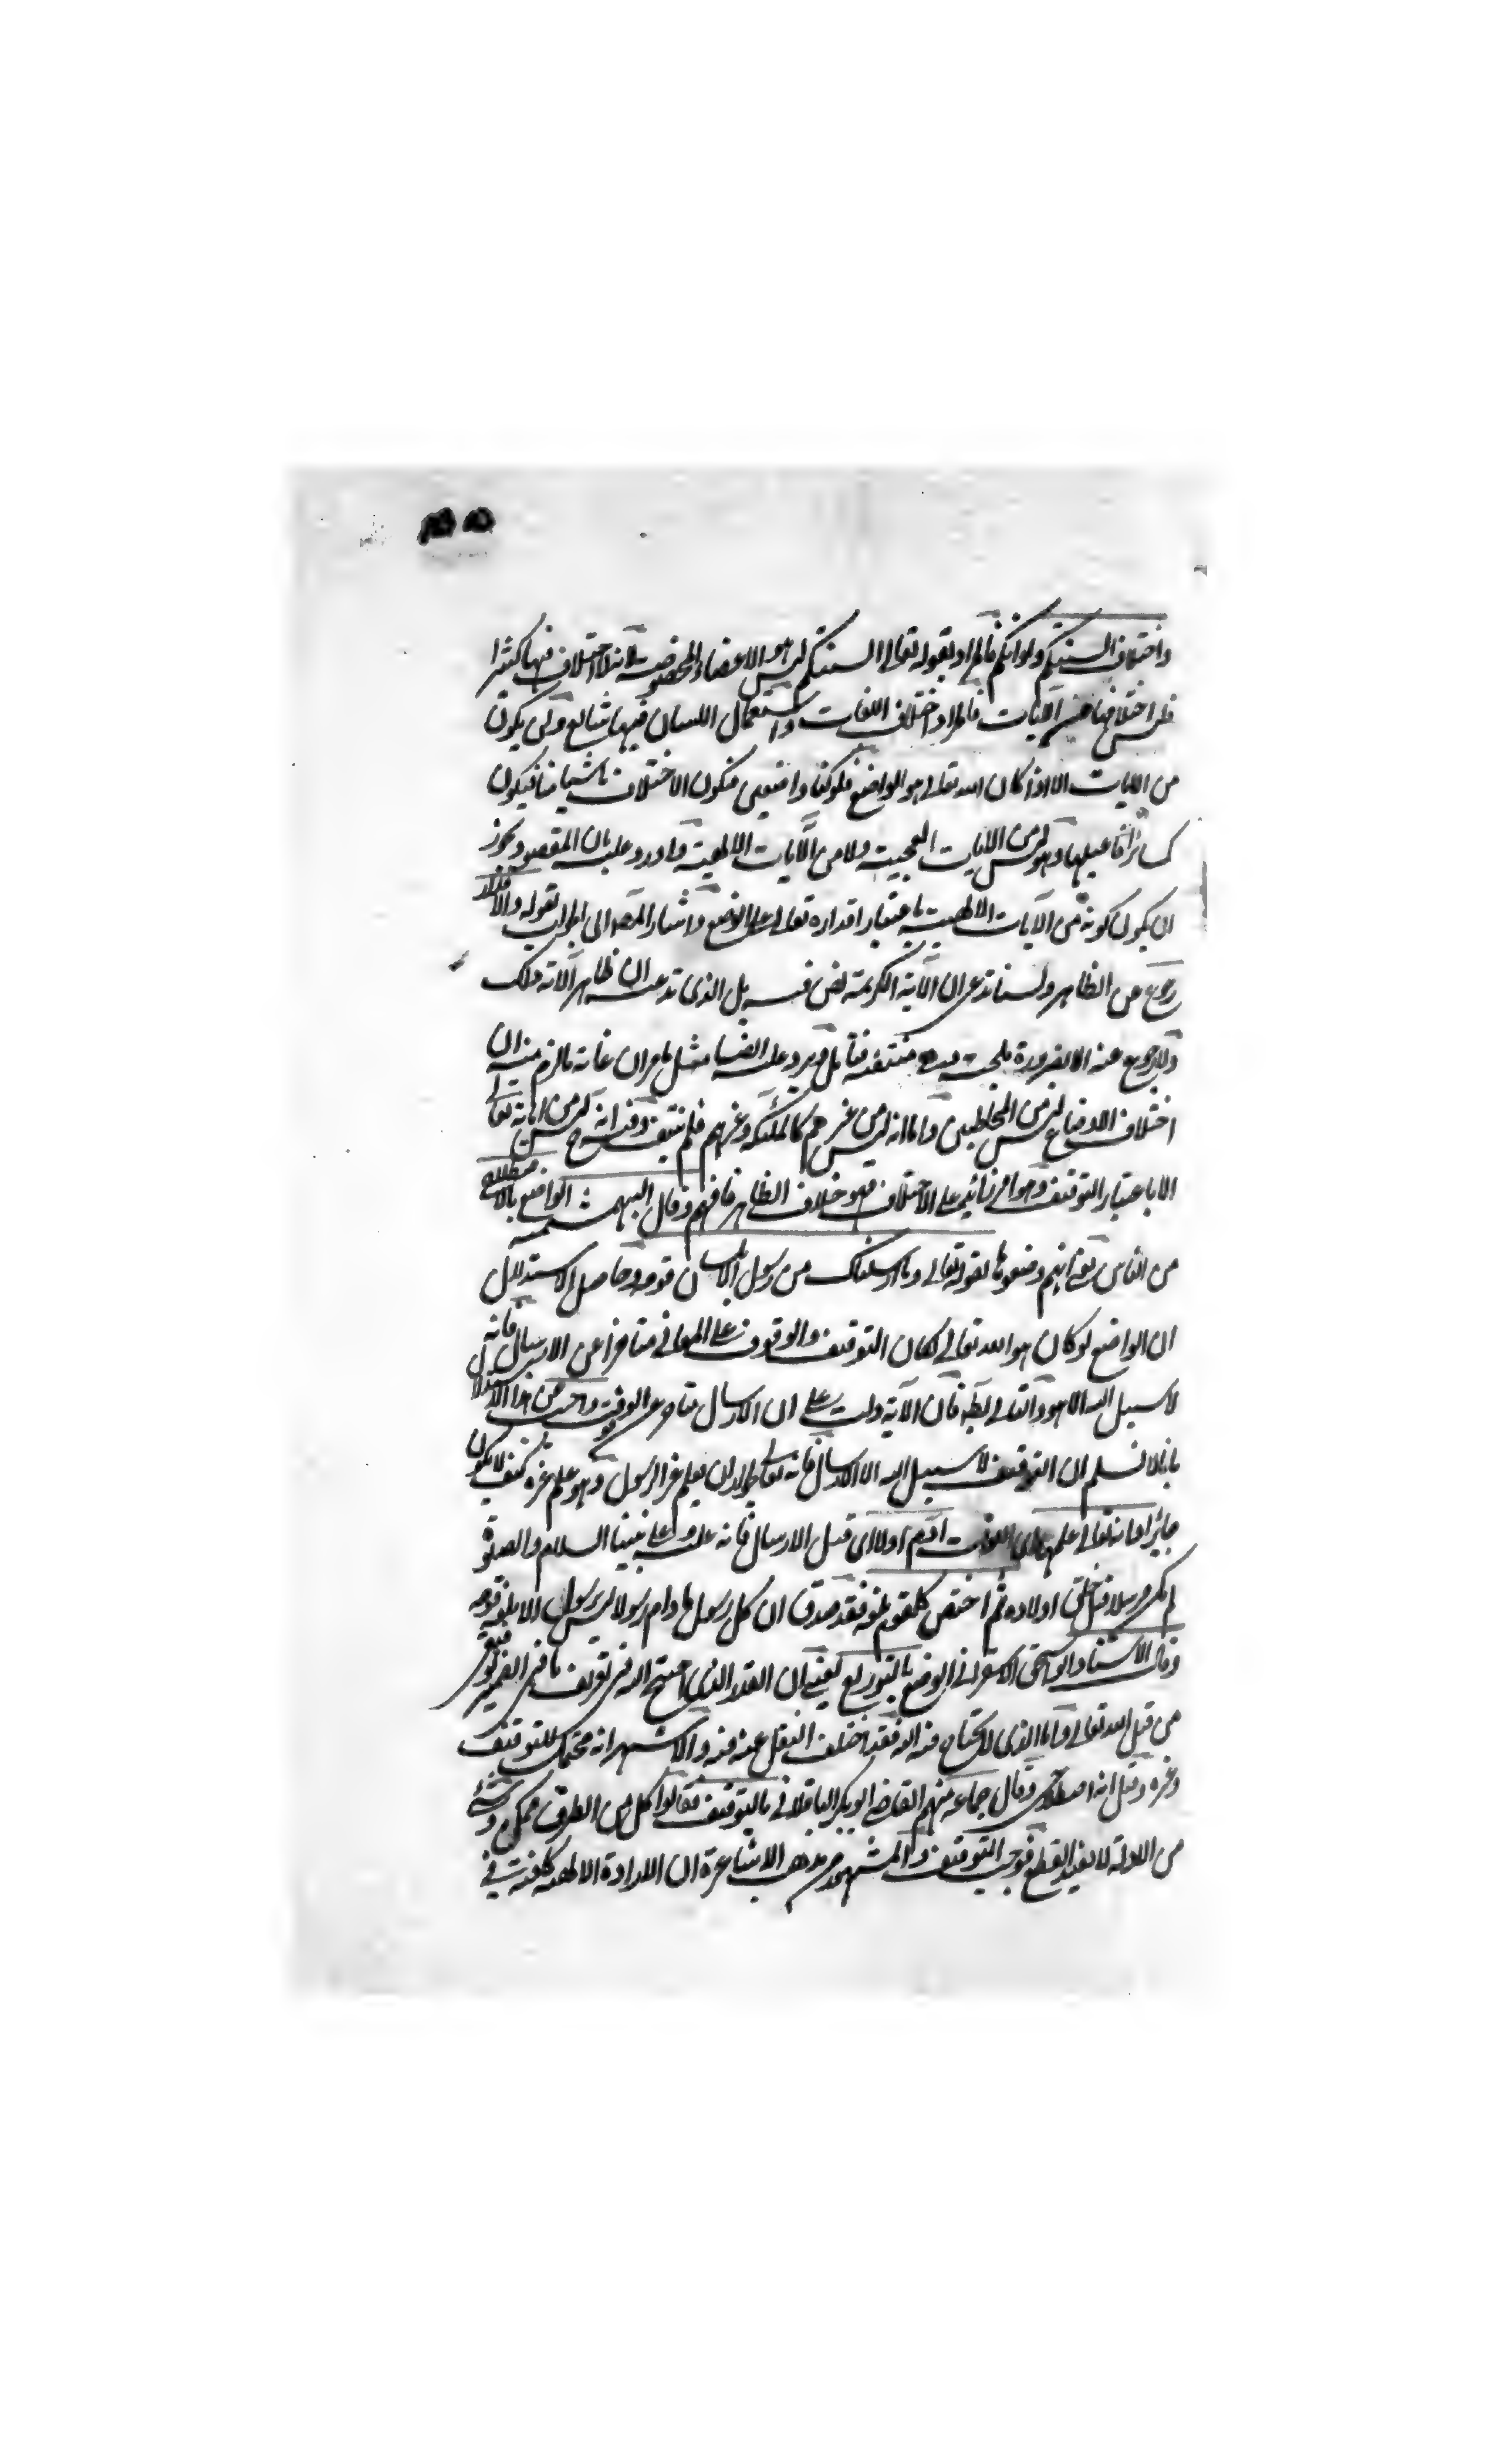 واختلاف السنتكم والوانكم فالمراد بقوله تعالى السنتكم ليس هو الاعضاء المخصوصة لانه لا اختلاف فيها كثيرا
فليس اختلافها من الآيات فالمراد اختلاف اللغات واستعمال اللسان فيها شايع ولن يكون
من الايات الا اذا كان الله تعالى هو الواضع فلو كنا واضعين فيكون الاختلاف ناشيا منا فيكون
كسائر افاعيلنا وهو ليس من الايات العجيبة ولا من الآيات الالهية واورد عليه بان المقصود يجوز
ان يكون كونه من الآيات الالهية باعتبار اقداره تعالى على الوضع واشار المص الى الجواب بقوله والاقدار
رجوع عن الظاهر ولسنا ندعى ان الآية الكريمة نص فيه بل الذى ندعيه ان ظاهر الآية ذلك
ولا رجوع عنه الا بضرورة ملجئة وهى منتفية فتأمل ويرد عليه ايضا مثل ما مر ان غاية ما لزم منه ان
اختلاف الاوضاع ليس من المخاطبين واما انه ليس من غيرهم كالملئكة وغيرهم فلم يثبت وفيه انه ح ليس من آياته تعالى
الا باعتبار التوقيف وهو امر زائد على الاختلاف فهو خلاف الظاهر فافهم وقال البهشمية الواضع بالاصطلاح
من الناس يعنى انهم وضعوها لقوله تعالى وما ارسلناك من رسول الا بلسان قومه وحاصل الاستدلال
ان الواضع لو كان هو الله تعالى لكان التوقيف والوقوف على المعانى متاخرا عن الارسال فانه
لا سبيل اليه الا هو والتالى بط فان الآية دلت على ان الارسال متاخر عن الوقوف واجيب عن هذا الاستدلال
بانا لا نسلم ان التوقيف لا سبيل اليه الا الارسال فانه تعالى جواد ان يعلم غير الرسول وهو علم غيره كيف لا يكون
جائزا فانه تعالى علمها اى اللغات آدم اولا اى قبل الارسال فانه عليه وعلى نبينا السلام والصلوة
لم يكن مرسلا قبل خلق اولاده ثم اختص كل قوم بلغة فقد صدق ان كل رسول ما دام رسولا ليس رسول الا بلغة قومه
وقال الاستاذ ابو اسحق الاسفرائنى الوضع بالتوزيع يعنى ان القدر الذى احتيج اليه فى تعريف ما فى الضمير توقيفى
من قبل الله تعالى واما الذى لا يحتاج فيه اليه فقد اختلف النقل عنه فيه والاشهر انه محتمل للتوقيف
وغيره وقيل انه اصطلاحى وقال جماعة منهم القاضى ابو بكر الباقلانى بالتوقف فقالوا كل من الطرق ممكن وشئ
من الادلة لا يفيد القطع فوجب التوقف والمشهور من مذهب الاشاعرة ان الارادة الالهية كافية فى